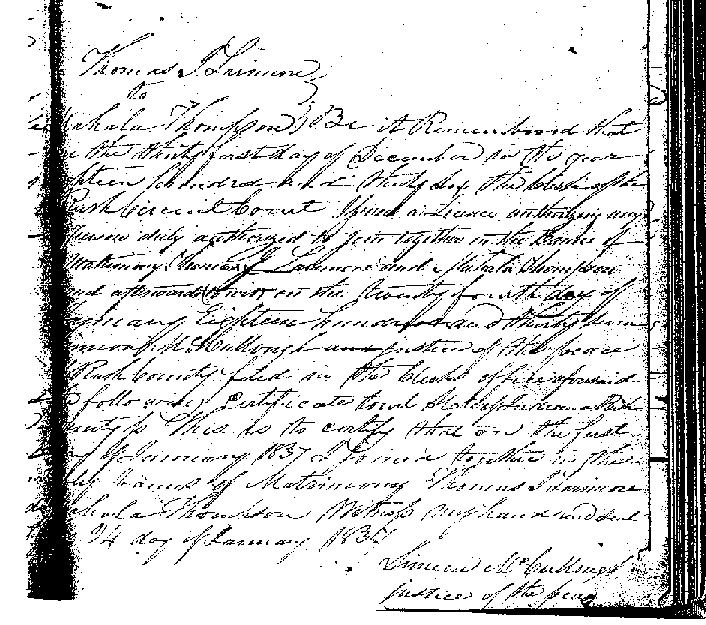 Thomas J Larimore
to
Mahala Thompson } Be it Remembered that
on the thirty first day of December in the year
Eighteen hundred and thirty six the clerk of the
Rush Circuit Court Issued a Licence authorizing any
person duly authorized to join together in the bands of
Matrimony Thomas J Larimore and Mahala Thompson
and afterwards towit on the twenty fourth day of
January Eighteen hundred and thirty seven
Simeon McCullough an justice of the peace
Rush County filed in the clerks office aforesaid
the following certificate towit State of Indiana Rush
County ss This is to certify that on the first
day of January 1837 I joined together in the
holy bands of Matrimony Thomas Larimore
Mahala Thompson Witness my hand and seal
24 day of January 1837
Simeon McCullough
justice of the peace